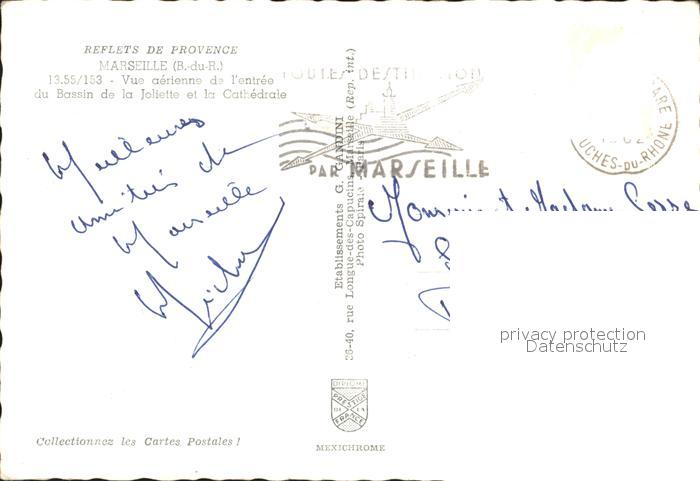 REFLETS DE PROVENCE
MARSEILLE (B.-du-R.)
13.55/153 - Vue aérienne de l'entrée
du Bassin de la Joliette et la Cathédrale
Meilleures
amitiés de
Marseille
TOUTES DESTINATIONS
PAR MARSEILLE
GARE
UCHES-DU-RHONE
Etablissements G. GANDINI
36-40, rue Longue-des-Capucins, Marseille (Rep. int.)
Photo Spirale
Monsieur et Madame
privacy protection
Datenschutz
DIPLOME
PRESTIGE
DE LA
FRANCE
Collectionnez les Cartes Postales !
MEXICHROME